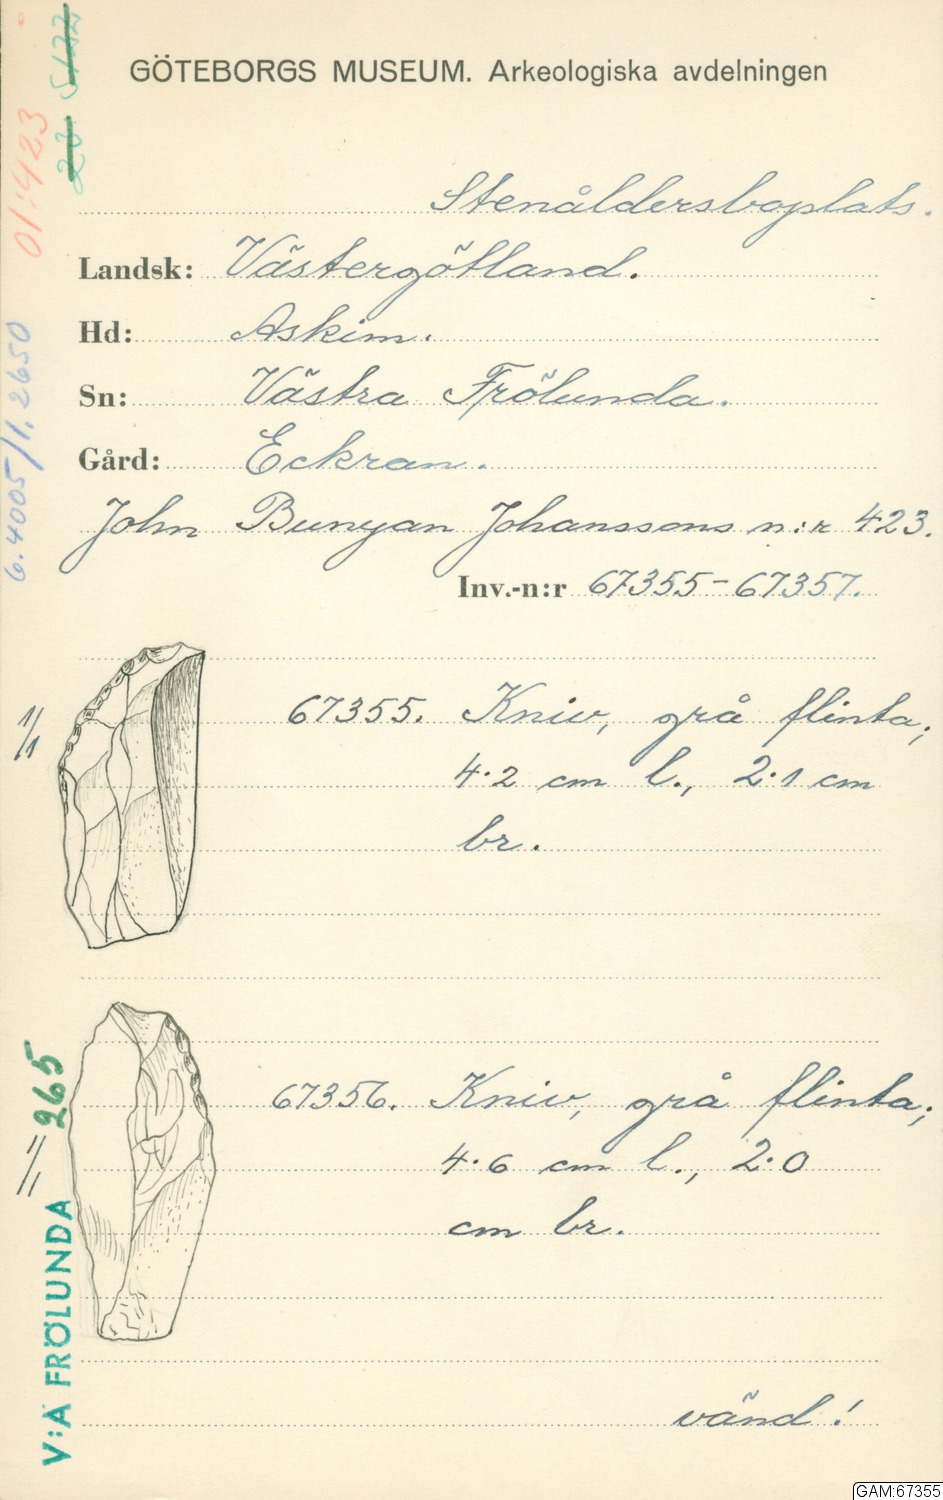 GÖTEBORGS MUSEUM. Arkeologiska avdelningen
Stenåldersboplats.
Landsk: Västergötland.
Hd: Askim.
Sn: Västra Frölunda.
Gård: Eckran.
John Bunyan Johanssons n:r 423.
Inv.-n:r 67355-67357.
1/1
67355. Kniv, grå flinta;
4·2 cm l., 2·1 cm
br.
1/1
67356. Kniv, grå flinta;
4·6 cm l., 2·0
cm br.
vänd!
V:A FRÖLUNDA 265
6.4005/1,2650
01:423
GAM:67355